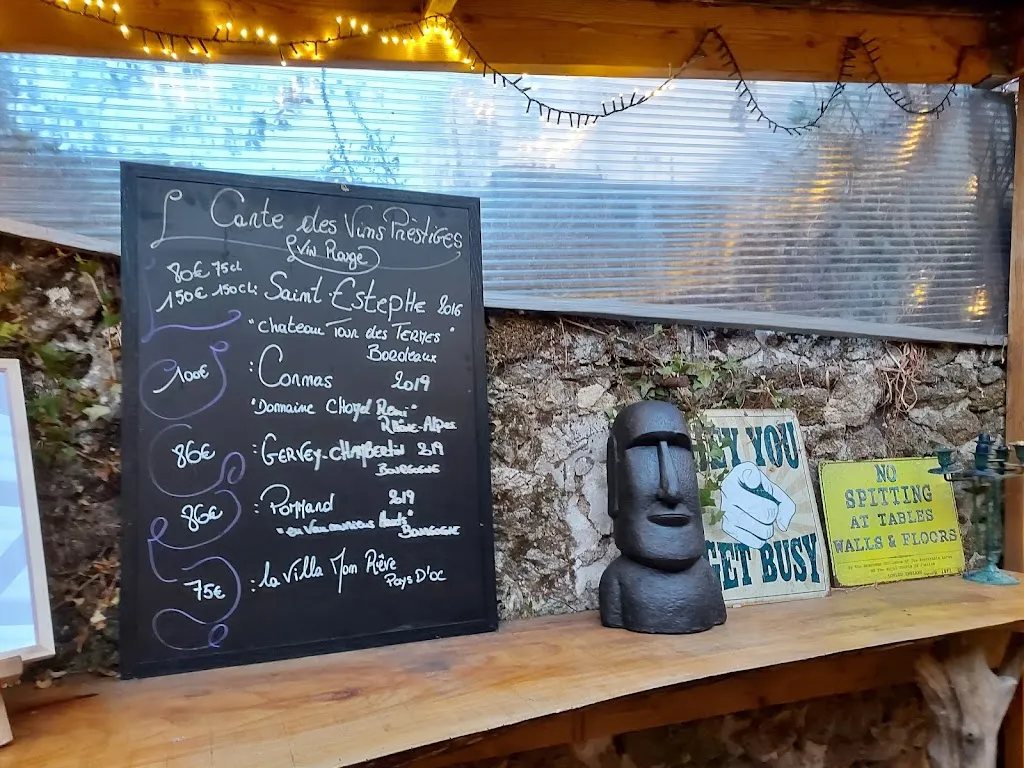 Carte des Vins Prèstiges
Vin Rouge
80€ 75cl
150€ 150cl: Saint Estephe 2016
"chateau Tour des Termes"
Bordeaux
100€ : Cornas 2019
"Domaine
Rhône-Alpes
86€ : Gervey-Chambertin 2019
Bourgogne
86€ : Pommard 2019
Bourgogne
75€ : la Villa Mon Rêve
Pays D'oc
HEY YOU
GET BUSY
NO
SPITTING
AT TABLES
WALLS & FLOORS